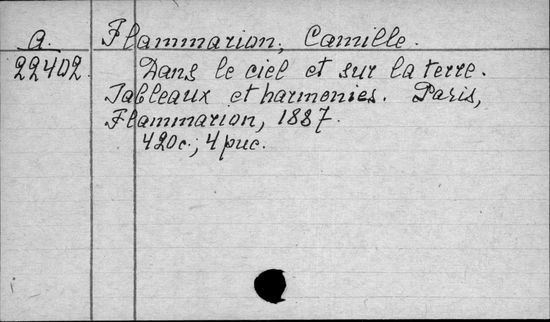 A. Flammarion, Camille.
22402. Dans le ciel et sur la terre.
Tableaux et harmonies. Paris,
Flammarion, 1887.
420с.; 4 рис.